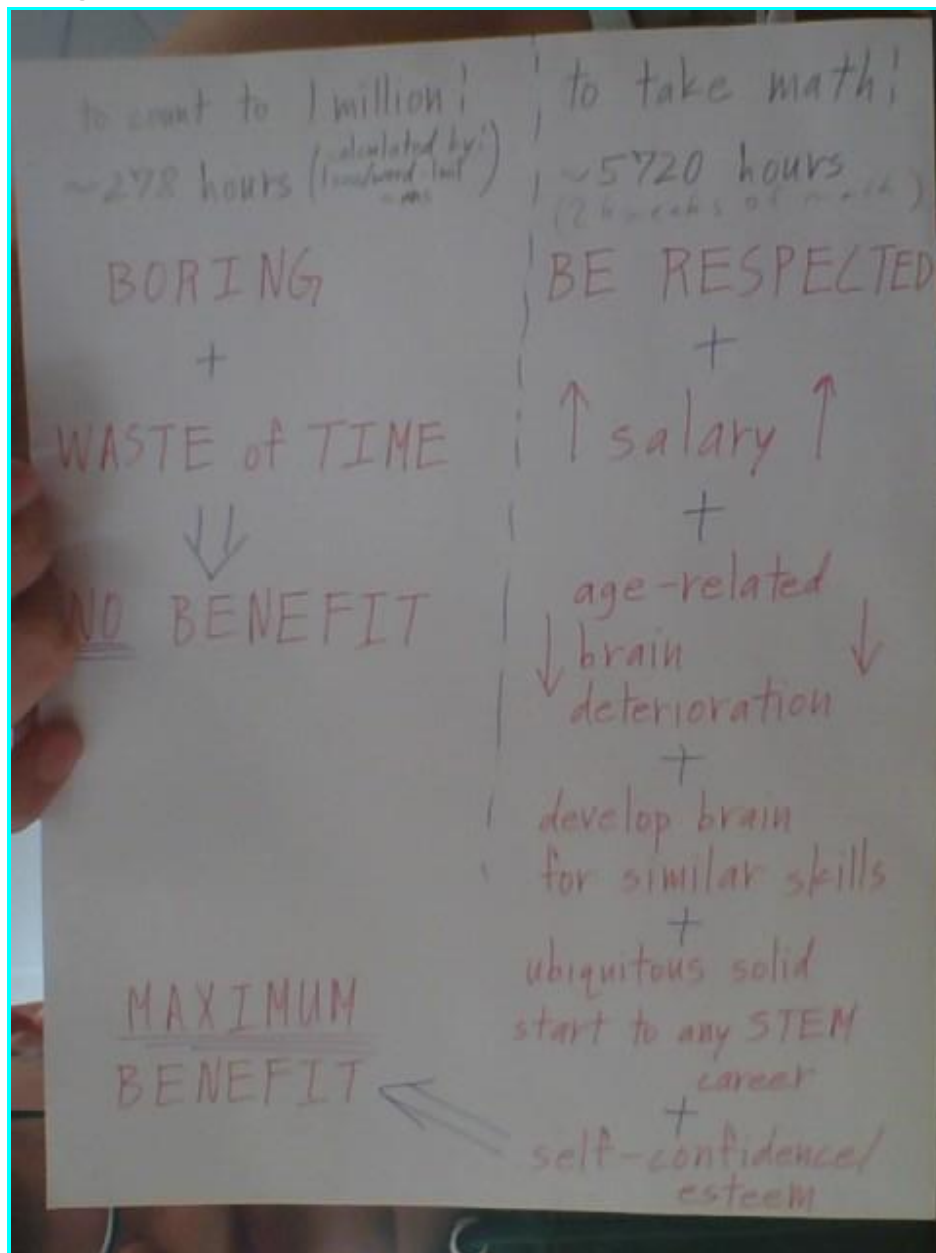 to count to 1 million!
~278 hours (calculated by:
BORING
+
WASTE of TIME
⇓
NO BENEFIT
to take math!
~5720 hours
BE RESPECTED
+
↑ salary ↑
+
age-related
↓ brain ↓
deterioration
+
develop brain
for similar skills
+
ubiquitous solid
start to any STEM
career
+
self-confidence/
esteem
MAXIMUM
BENEFIT